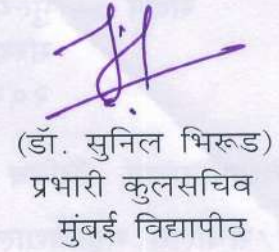 (डॉ. सुनिल भिरूड)
प्रभारी कुलसचिव
मुंबई विद्यापीठ